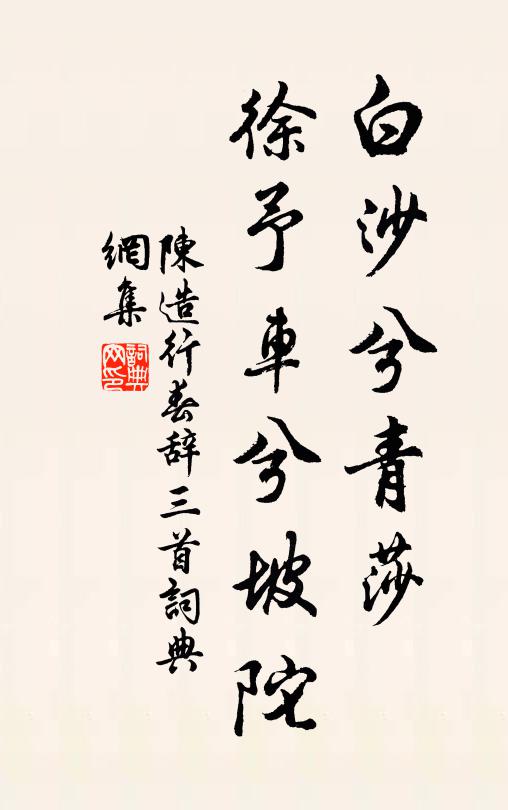 白沙兮青莎
徐予車兮坡陀
陳造行春辞三首詞典
網集
詞典網印